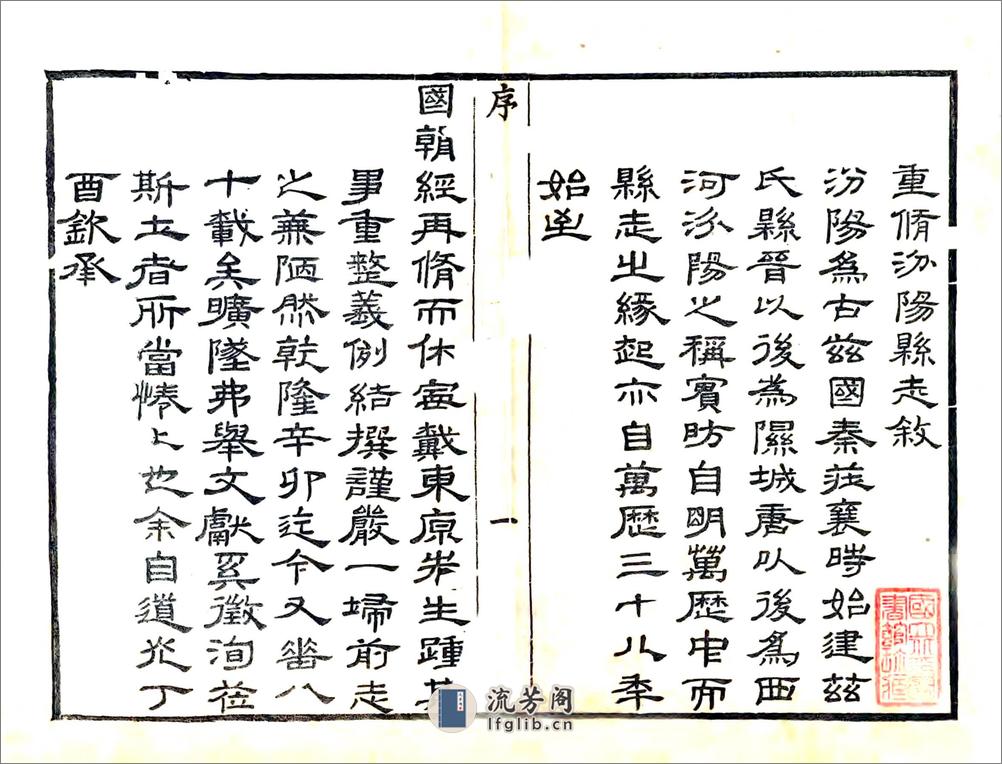 重脩汾陽縣志敘
汾陽爲古茲國秦莊襄時始建茲
氏縣晉以後爲隰城唐以後爲西
河汾陽之稱實昉自明萬歷中而
縣志之緣起亦自萬歷三十八年
始迨
序
一
國朝經再脩而休寧戴東原先生踵其
事重整義例結撰謹嚴一埽前志
之蕪陋然乾隆辛卯迄今又垂八
十載矣曠墜弗舉文獻奚徵洵莅
斯土者所當惓〻也余自道光丁
酉欽承
流芳阁
lfglib.cn